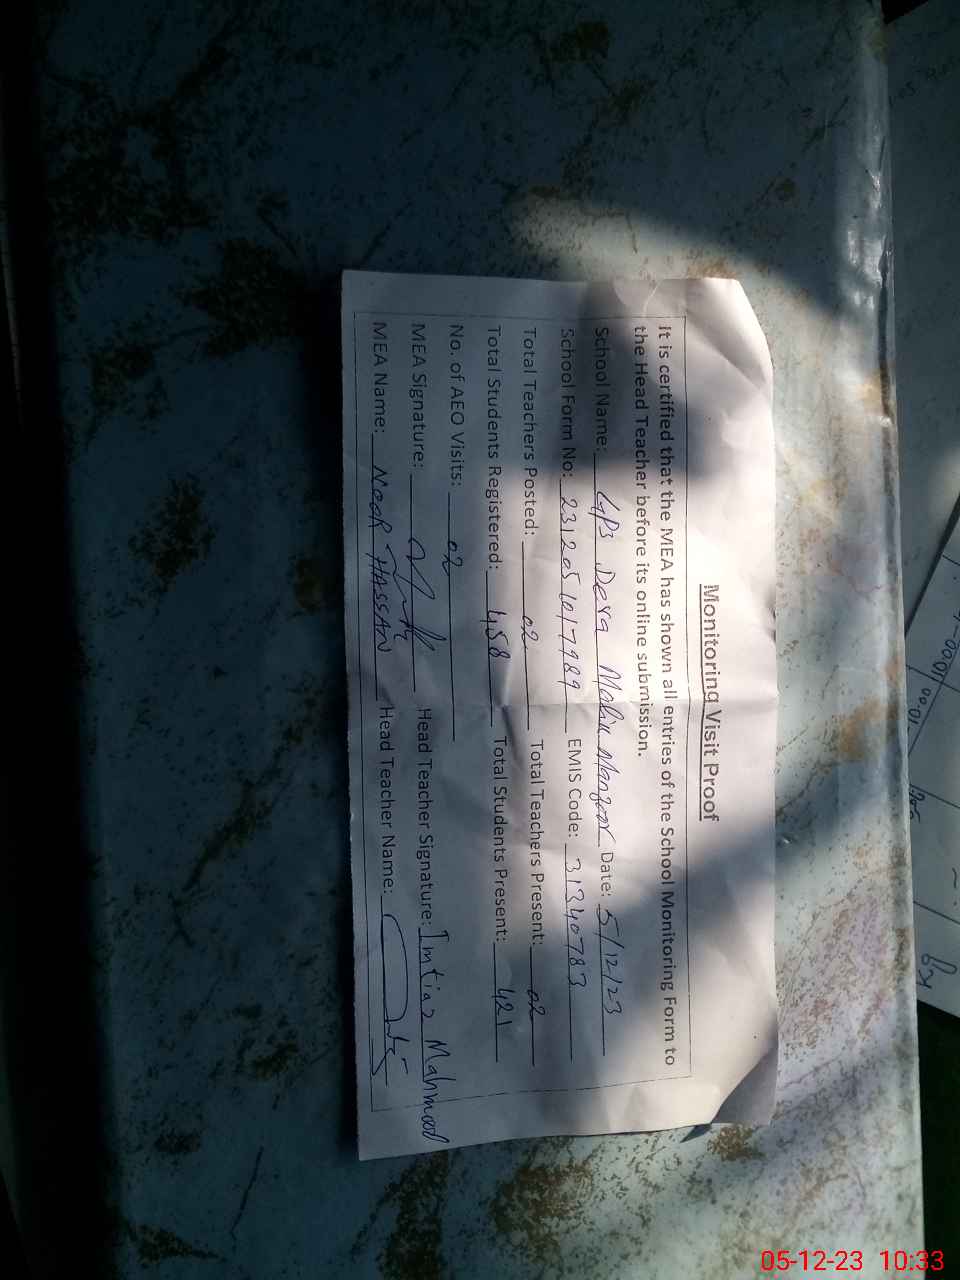 Monitoring Visit Proof
It is certified that the MEA has shown all entries of the School Monitoring Form to
the Head Teacher before its online submission.
School Name: GPS Dera Malik Manzoor Date: 5/12/23
School Form No: 2312051017989 EMIS Code: 31340783
Total Teachers Posted: 02 Total Teachers Present: 02
Total Students Registered: 458 Total Students Present: 421
No. of AEO Visits: 02
MEA Signature: Head Teacher Signature: Imtiaz Mahmood
MEA Name: NOOR HASSAN Head Teacher Name:
05-12-23 10:33